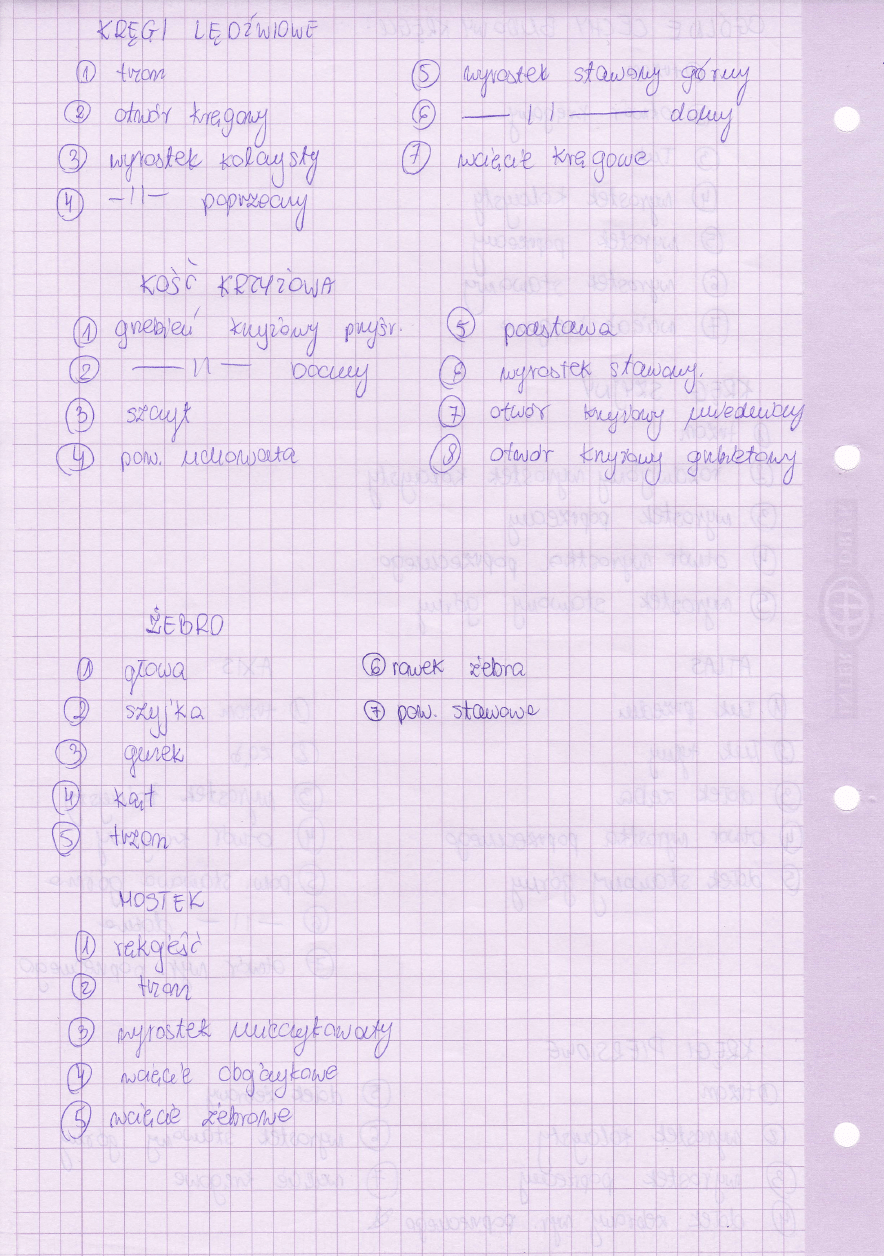 KRĘGI LĘDŹWIOWE
① trzon
② otwór kręgowy
③ wyrostek kolczysty
④ —11— poprzeczny
⑤ wyrostek stawowy górny
⑥ —11— dolny
⑦ wcięcie kręgowe
KOŚĆ KRZYŻOWA
① grzebień krzyżowy pośr.
② —11— boczny
③ szczyt
④ pow. uchowata
⑤ podstawa
⑥ wyrostek stawowy.
⑦ otwór krzyżowy miedniczny
⑧ otwór krzyżowy grzbietowy
ŻEBRO
① głowa
② szyjka
③ guzek
④ kąt
⑤ trzon
⑥ rowek żebra
⑦ pow. stawowa
MOSTEK
① rękojeść
② trzon
③ wyrostek mieczykowaty
④ wcięcie obojczykowe
⑤ wcięcie żebrowe